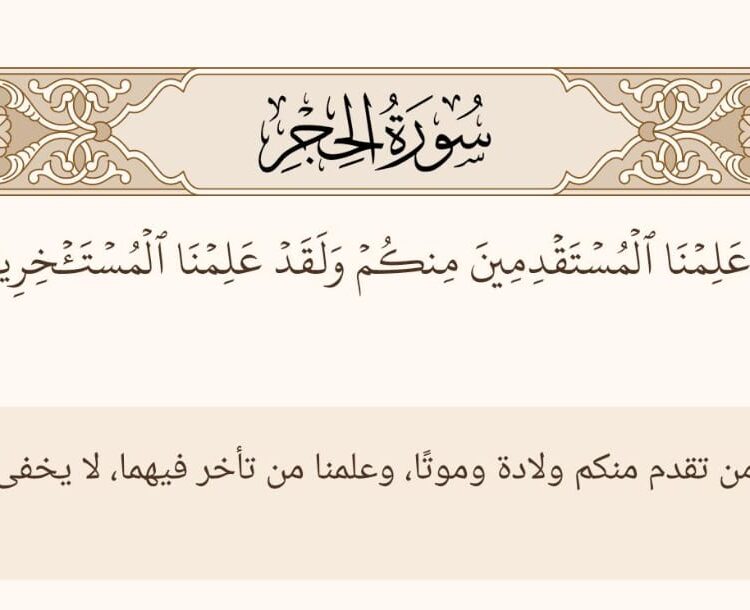 سُورَةُ الحِجْرِ
عَلِمْنَا ٱلْمُسْتَقْدِمِينَ مِنكُمْ وَلَقَدْ عَلِمْنَا
من تقدم منكم ولادة وموتًا، وعلمنا من تأخر فيهما، لا يخفى